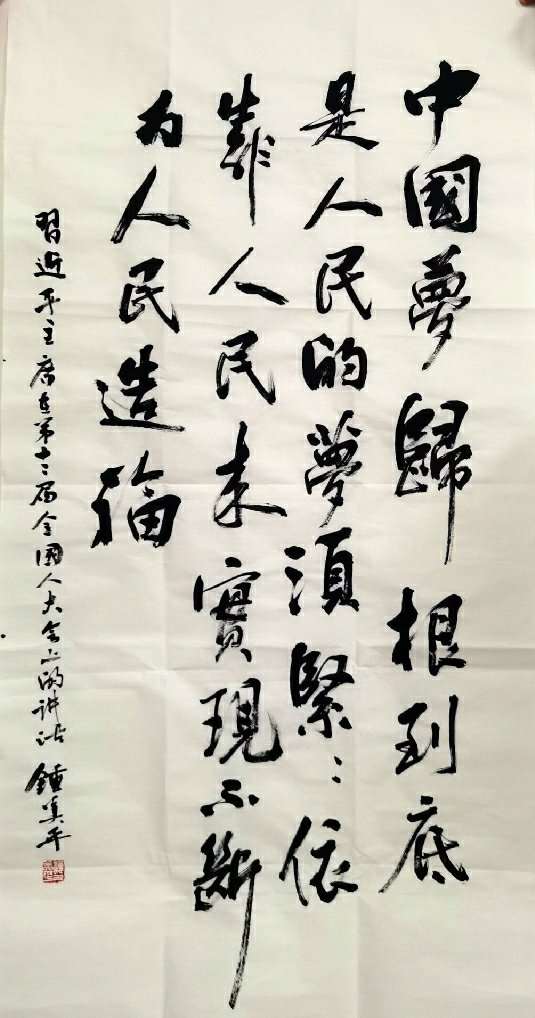 中國夢歸根到底
是人民的夢須緊〻依
靠人民来實現不斷
为人民造福
習近平主席在第十二届全國人大会上的讲话 鍾美平